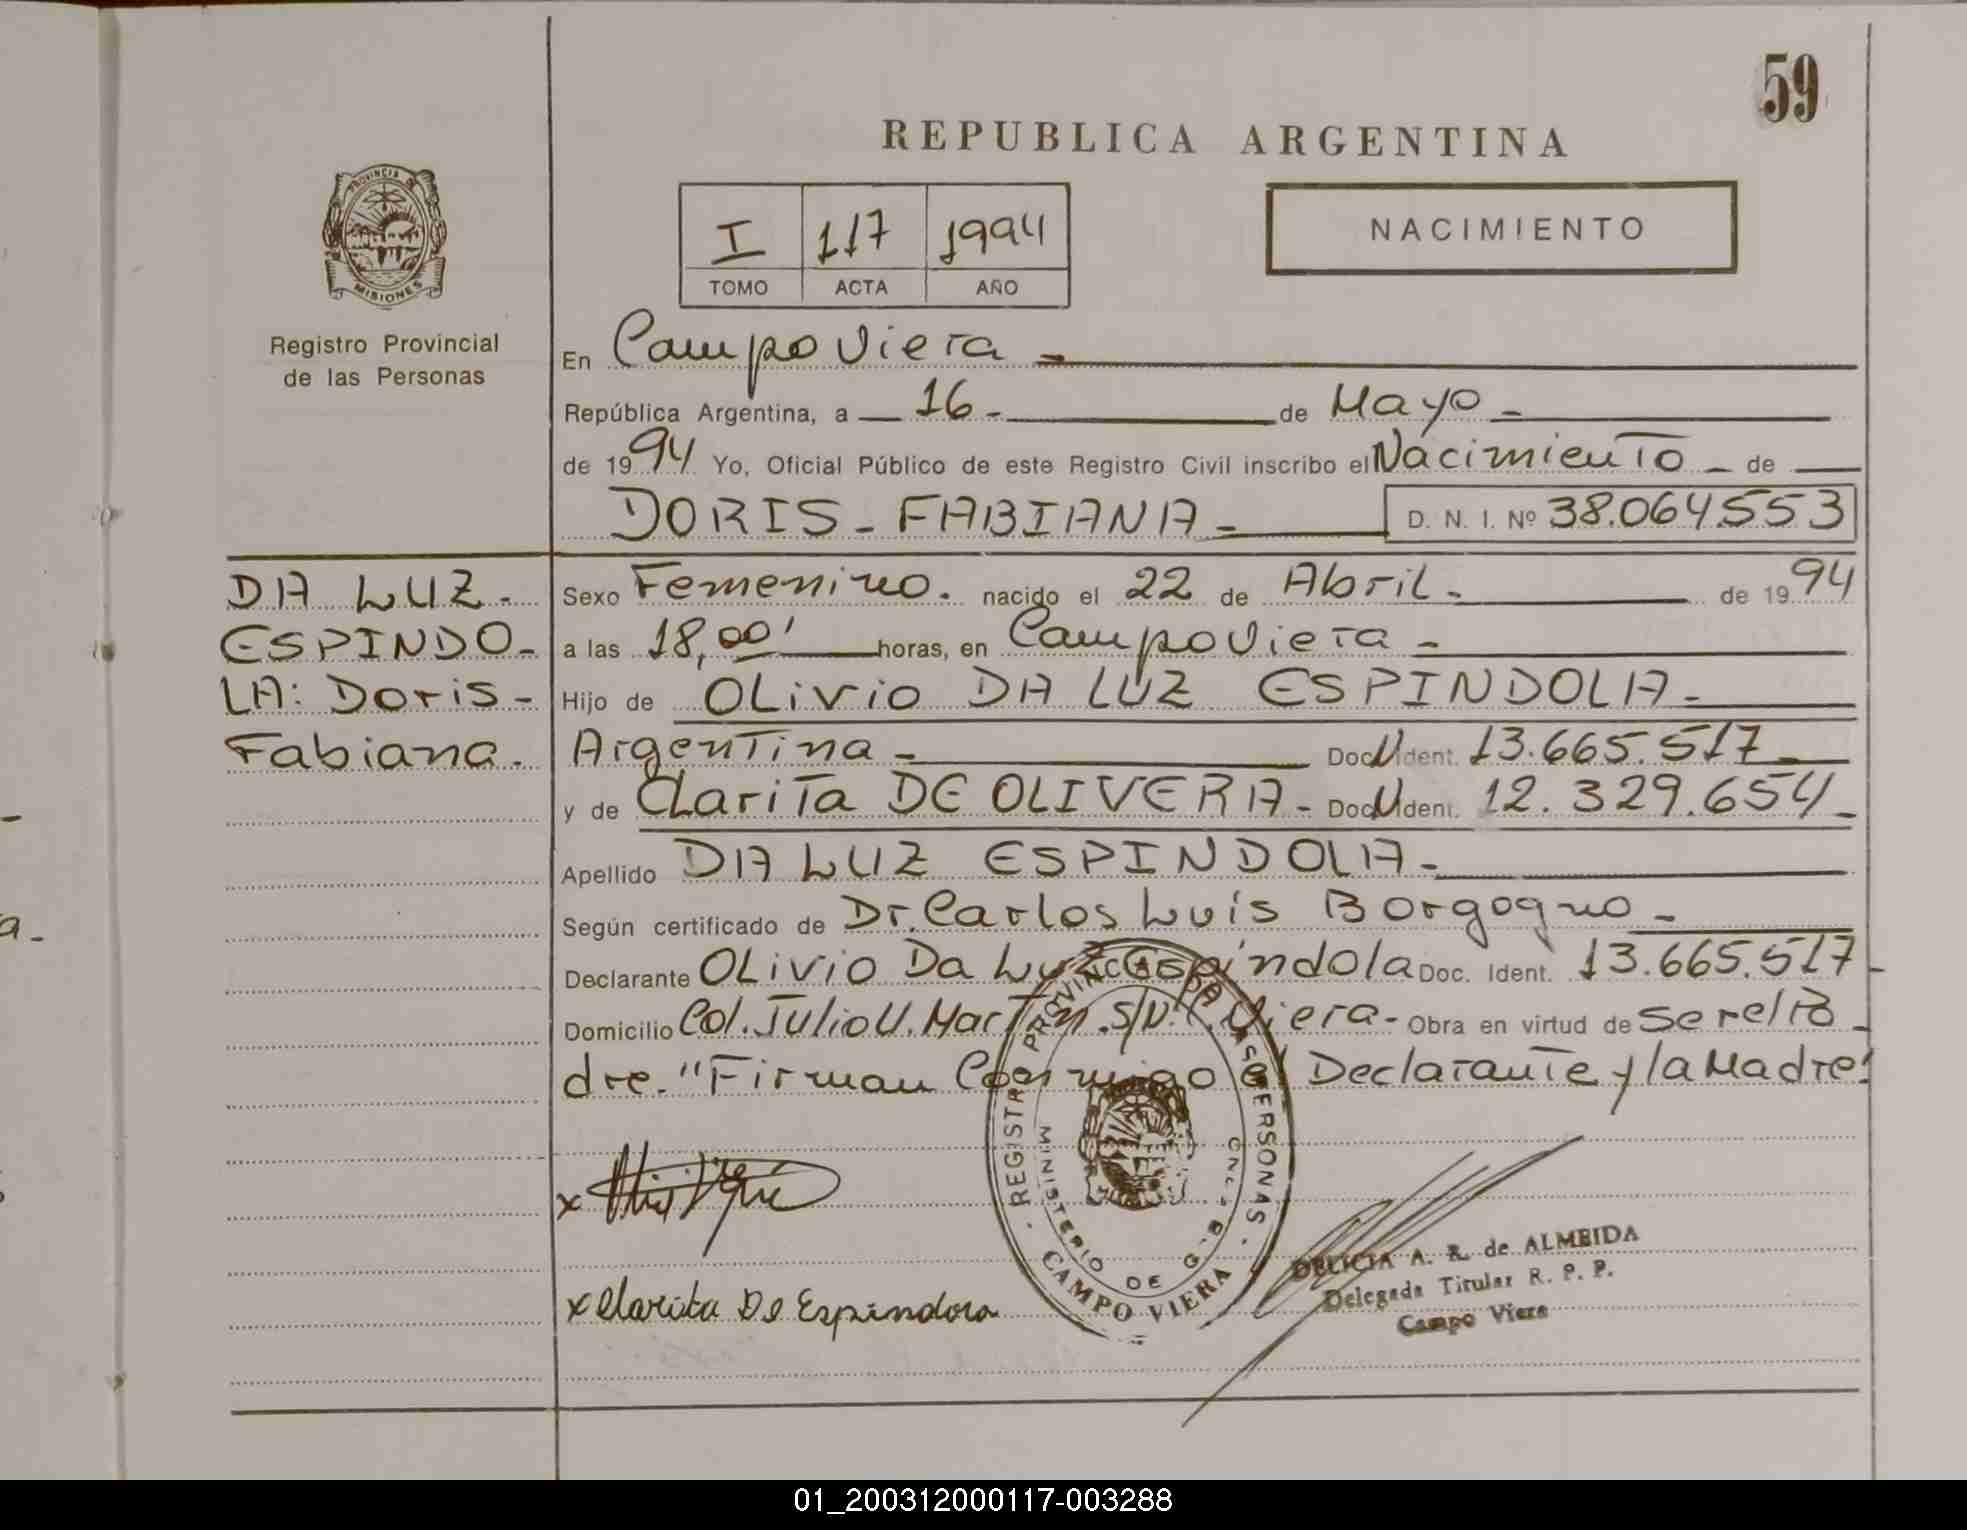 59
REPUBLICA ARGENTINA
PROVINCIA DE
MISIONES
Registro Provincial
de las Personas
I 117 1994
TOMO ACTA AÑO
NACIMIENTO
En Campo Viera -
República Argentina, a 16 - de Mayo -
de 1994 Yo, Oficial Público de este Registro Civil inscribo el Nacimiento - de
DORIS - FABIANA - D. N. I. Nº 38.064.553
DA LUZ -
ESPINDO-
LA: Doris -
Fabiana.
Sexo Femenino. nacido el 22 de Abril - de 1994
a las 18,00' horas, en Campo Viera -
Hijo de OLivio DA LUZ ESPINDOLA -
Argentina - Doc. Ident. 13.665.517 -
y de CLariTa DE OLIVERA - Doc. Ident. 12.329.654 -
Apellido DA LUZ ESPINDOLA -
Según certificado de Dr. Carlos Luis Borgogno -
Declarante OLivio Da Luz Espindola Doc. Ident. 13.665.517 -
Domicilio Col. Julio U. Martin. S/N. C. Viera - Obra en virtud de ser el Pa-
dre. "Firman Conmigo el Declarante y la Madre"
x
x Clarita De Espindora
REGISTRO PROVINCIAL DE LAS PERSONAS
MINISTERIO DE GOB.
CAMPO VIERA
DELICIA A. R. de ALMEIDA
Delegada Titular R. P. P.
Campo Viera
01_200312000117-003288